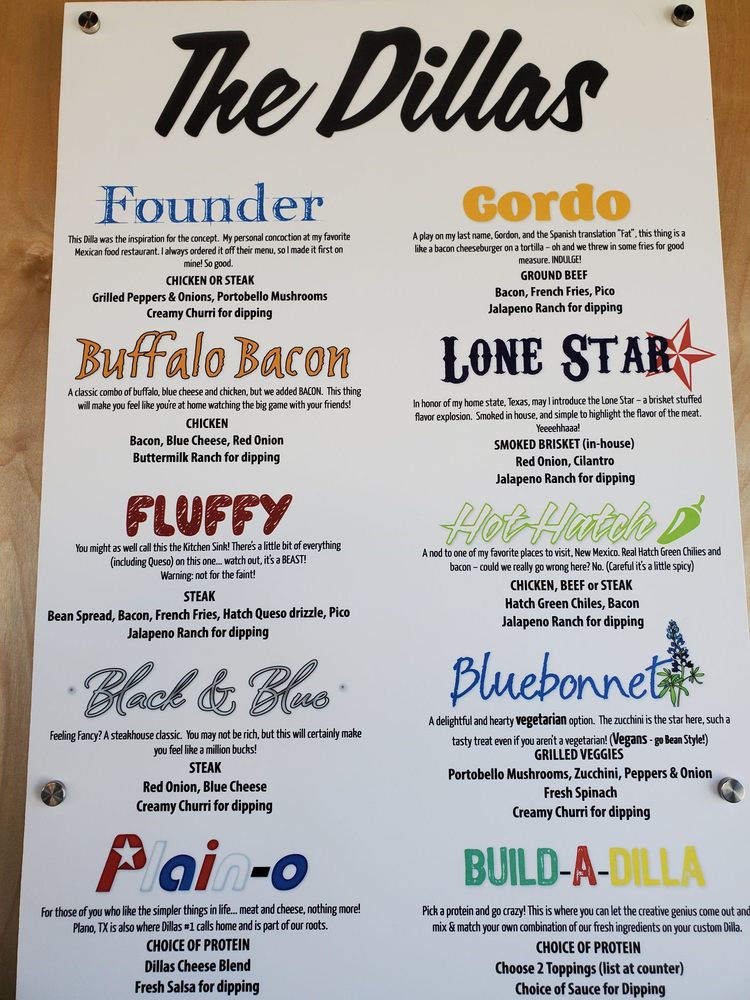 The Dillas
Founder
This Dilla was the inspiration for the concept. My personal concoction at my favorite
Mexican food restaurant. I always ordered it off their menu, so I made it first on
mine! So good.
CHICKEN OR STEAK
Grilled Peppers & Onions, Portobello Mushrooms
Creamy Churri for dipping
Buffalo Bacon
A classic combo of buffalo, blue cheese and chicken, but we added BACON. This thing
will make you feel like you're at home watching the big game with your friends!
CHICKEN
Bacon, Blue Cheese, Red Onion
Buttermilk Ranch for dipping
FLUFFY
You might as well call this the Kitchen Sink! There's a little bit of everything
(including Queso) on this one... watch out, it's a BEAST!
Warning: not for the faint!
STEAK
Bean Spread, Bacon, French Fries, Hatch Queso drizzle, Pico
Jalapeno Ranch for dipping
Black & Blue
Feeling Fancy? A steakhouse classic. You may not be rich, but this will certainly make
you feel like a million bucks!
STEAK
Red Onion, Blue Cheese
Creamy Churri for dipping
Plain-o
For those of you who like the simpler things in life... meat and cheese, nothing more!
Plano, TX is also where Dillas #1 calls home and is part of our roots.
CHOICE OF PROTEIN
Dillas Cheese Blend
Fresh Salsa for dipping
Gordo
A play on my last name, Gordon, and the Spanish translation "Fat", this thing is a
like a bacon cheeseburger on a tortilla – oh and we threw in some fries for good
measure. INDULGE!
GROUND BEEF
Bacon, French Fries, Pico
Jalapeno Ranch for dipping
LONE STAR
In honor of my home state, Texas, may I introduce the Lone Star – a brisket stuffed
flavor explosion. Smoked in house, and simple to highlight the flavor of the meat.
Yeeeehhaaa!
SMOKED BRISKET (in-house)
Red Onion, Cilantro
Jalapeno Ranch for dipping
Hot Hatch
A nod to one of my favorite places to visit, New Mexico. Real Hatch Green Chilies and
bacon – could we really go wrong here? No. (Careful it's a little spicy)
CHICKEN, BEEF or STEAK
Hatch Green Chiles, Bacon
Jalapeno Ranch for dipping
Bluebonnet
A delightful and hearty vegetarian option. The zucchini is the star here, such a
tasty treat even if you aren't a vegetarian! (Vegans - go Bean Style!)
GRILLED VEGGIES
Portobello Mushrooms, Zucchini, Peppers & Onion
Fresh Spinach
Creamy Churri for dipping
BUILD-A-DILLA
Pick a protein and go crazy! This is where you can let the creative genius come out and
mix & match your own combination of our fresh ingredients on your custom Dilla.
CHOICE OF PROTEIN
Choose 2 Toppings (list at counter)
Choice of Sauce for Dipping